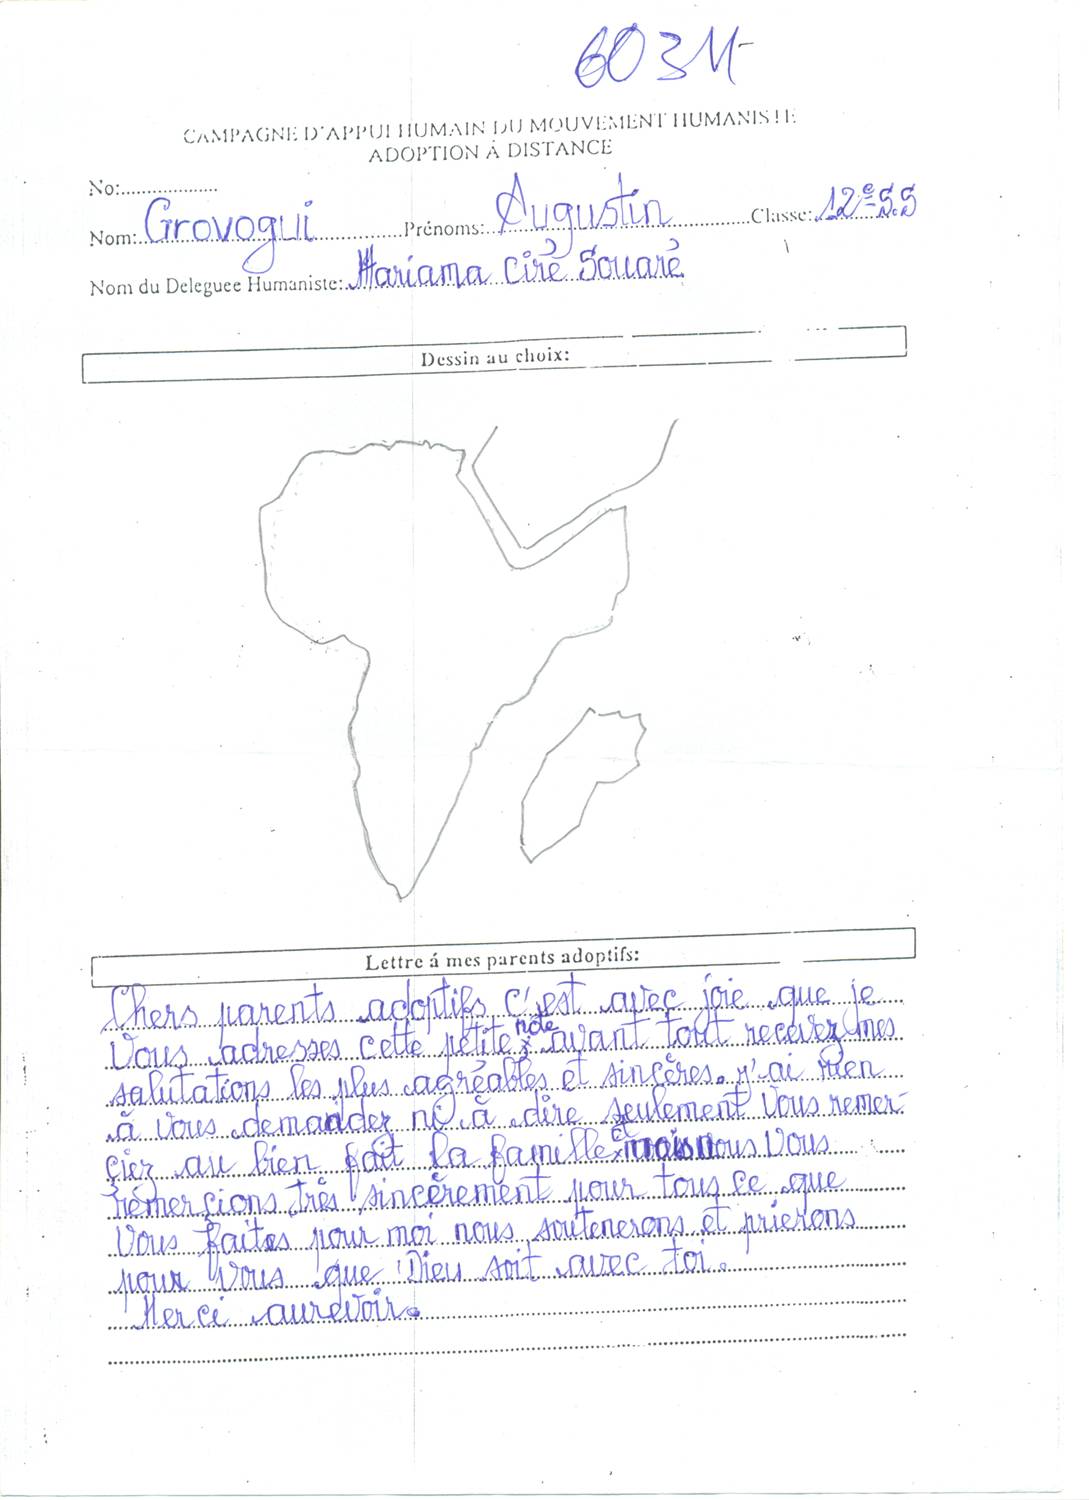 603M
CAMPAGNE D'APPUI HUMAIN DU MOUVEMENT HUMANISTE
ADOPTION Á DISTANCE
No:...................
Nom: Grovogui Prénoms: Augustin Classe: 12e S.S
Nom du Deleguee Humaniste: Mariama Ciré Souaré
Dessin au choix:
Lettre á mes parents adoptifs:
Chers parents adoptifs c'est avec joie que je
Vous adresses cette petite note avant tout recevez mes
salutations les plus agréables et sincères. j'ai rien
à vous demander ni à dire seulement Vous remer-
ciez au bien fait la famille et nous Vous
rémercions très sincèrement pour tous ce que
Vous faites pour moi nous soutenerons et prierons
pour Vous que Dieu soit avec toi.
Merci aurevoir.